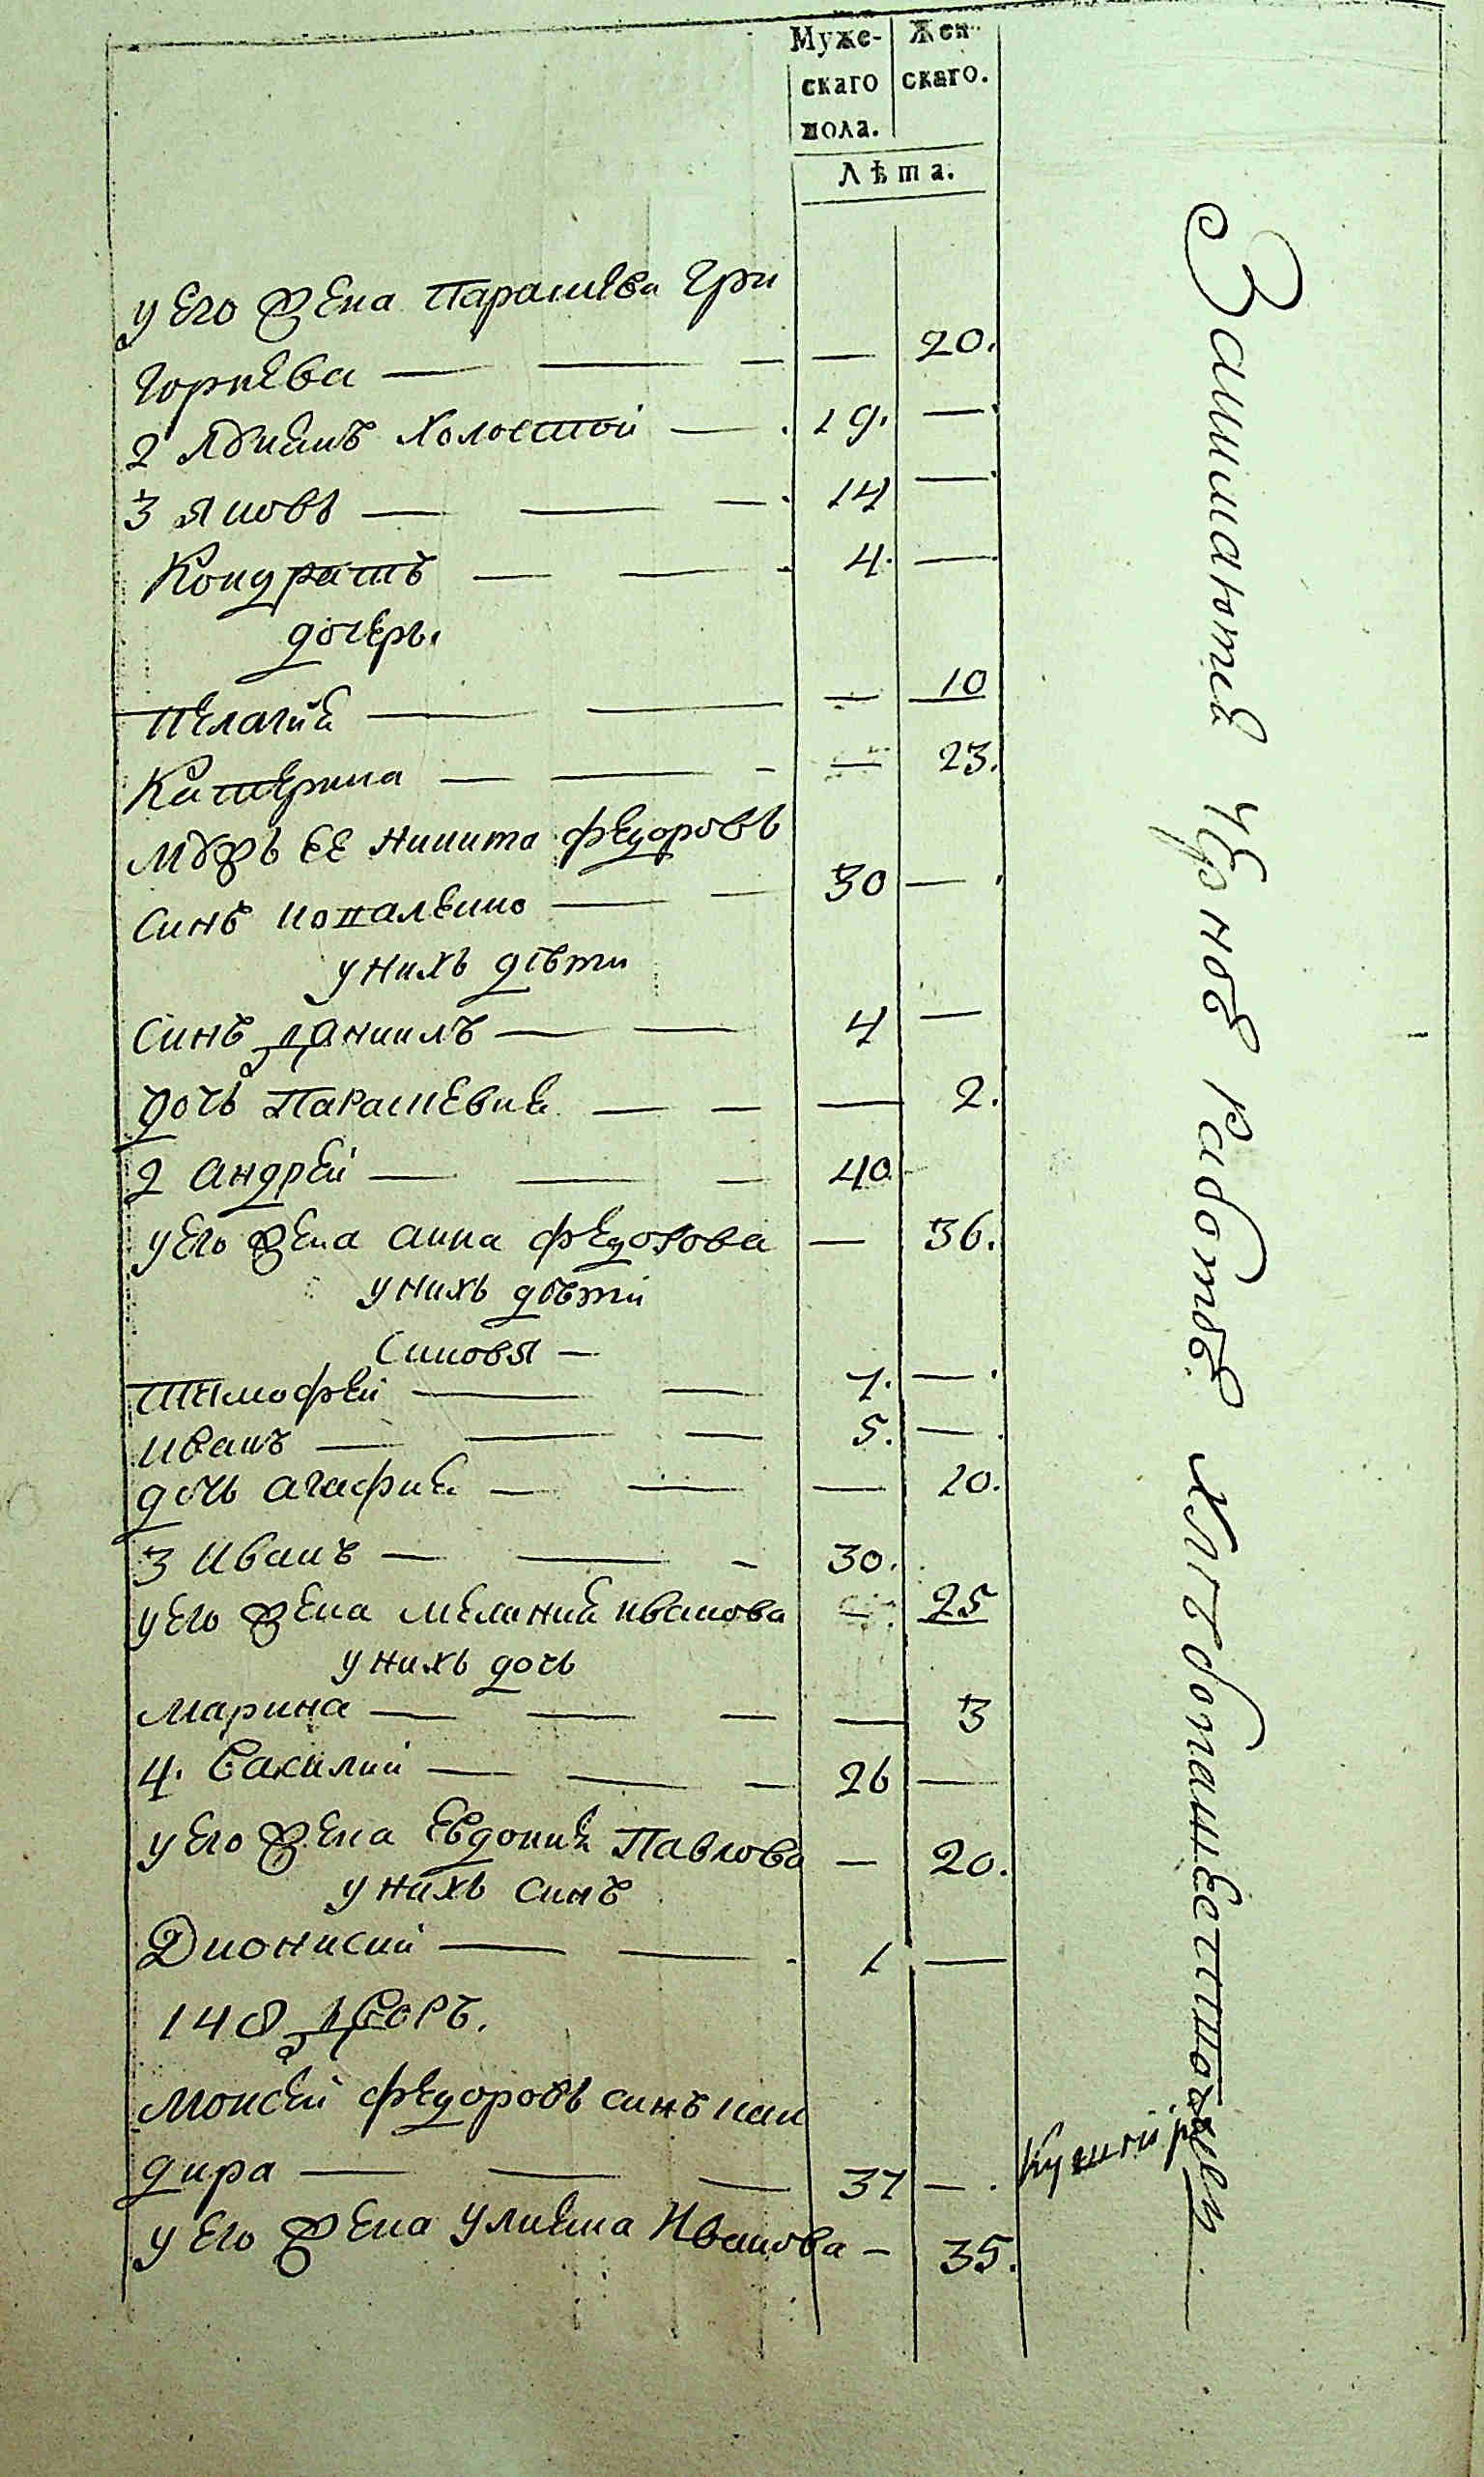 Муже- Жен-
скаго скаго.
пола.
Лѣта.
у его жена Параскева Гри
горьева — — — — 20.
2 Адріанъ холостой — 19. —
3 Яковъ — — — 14 —
Кондратъ — — 4. —
дочерь.
Пелагия — — — 10
Катерина — — — — 23.
Мужъ ее Никита Федоровъ
синъ — — 30 —
у нихъ дѣти
Синъ Даниилъ — — 4 —
дочь Параскевия — — — 2.
2 Андрей — — — 40
у его жена Анна Федорова — 36.
у нихъ дѣти
Синовя —
Тимофей — — 7. —
Иванъ — — — 5. —
дочь Агафия — — — 10.
3 Иванъ — — — 30.
у его жена Мелания Иванова — 25
у нихъ дочь
Марина — — — — 3
4. Василий — — — 26 —
у его жена Евдокия Павлова — 20.
у нихъ синъ
Дионисий — — 1 —
148 дворъ.
Моисей Федоровъ синъ Кан
дира — — — 37 —
у его жена Улияна Иванова — 35.
Занимаются черной работой хлебопашествомъ